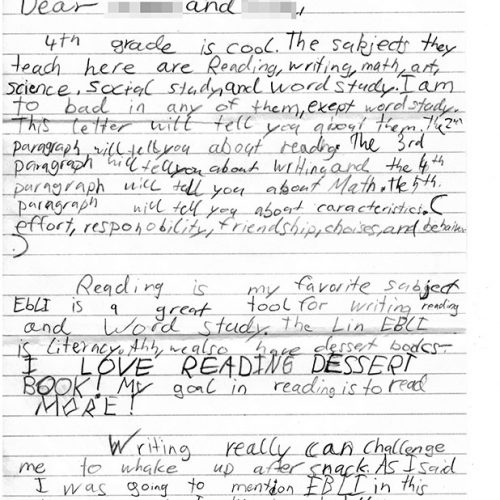 Dear and ,
4th grade is cool. The sabjects they
teach here are Reading, writing, math, art,
science, social study, and word study. I am
to bad in any of them, exept word study.
This letter will tell you about them. The 2nd
paragraph will tell you about reading. The 3rd
paragraph will tell you about writing and the 4th
paragraph will tell you about Math. the 5th.
paragraph will tell you about caracteristics. (
effort, responobility, friendship, choises, and behavior
.)
Reading is my favorite sabject
EBLI is a great tool for writing reading
and Word study. the L in EBLI
is literncy. Ahh, we also have dessert books.
I LOVE READING DESSERT
BOOK! My goal in reading is to read
MORE!
Writing really can challenge
me to whake up after snack. As I said
I was going to mention EBLI in this